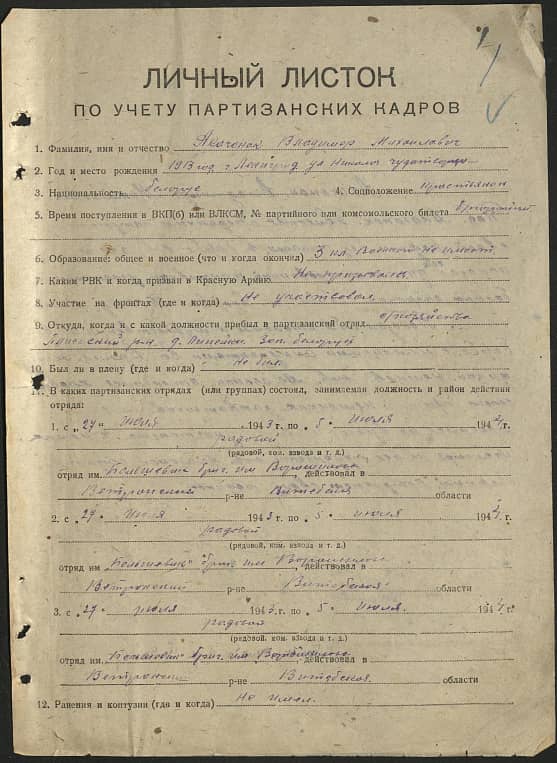 ЛИЧНЫЙ ЛИСТОК
ПО УЧЕТУ ПАРТИЗАНСКИХ КАДРОВ
1. Фамилия, имя и отчество Владимир Михайлович
2. Год и место рождения 1913 год г. Ленинград
3. Национальность белорус 4. Соцположение крестьянин
5. Время поступления в ВКП(б) или ВЛКСМ, № партийного или комсомольского билета
6. Образование: общее и военное (что и когда окончил) 3 кл. Военной не имеет
7. Каким РВК и когда призван в Красную Армию Не призывался
8. Участие на фронтах (где и когда) Не участвовал
9. Откуда, когда и с какой должности прибыл в партизанский отряд
р-н д. зап. белорус
10. Был ли в плену (где и когда) не был
11. В каких партизанских отрядах (или группах) состоял, занимаемая должность и район действия
отряда:
1. с „27" июля 1943 г. по „5" июля 1944 г.
рядовой
(рядовой, ком. взвода и т. д.)
отряд им. Большевик бриг. им Ворошилова, действовал в
Ветринский р-не Витебская области
2. с „27" июля 1943 г. по „5" июля 1944 г.
рядовой
(рядовой, ком. взвода и т. д.)
отряд им. „Большевик" бриг. им Ворошилова, действовал в
Ветринский р-не Витебская области
3. с „27" июля 1943 г. по „5" июля 1944 г.
рядовой
(рядовой, ком. взвода и т. д.)
отряд им. „Большевик" бриг. им Ворошилова, действовал в
Ветринский р-не Витебская области
12. Ранения и контузии (где и когда) Не имел.